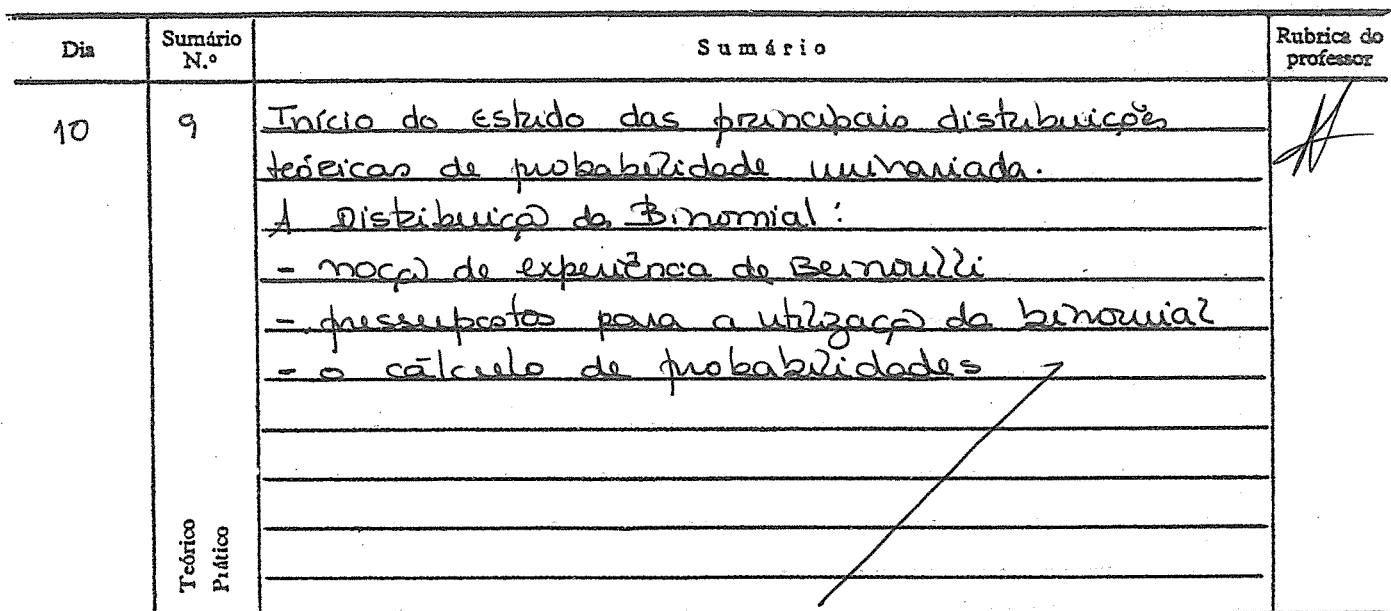 Dia Sumário N.º Sumário Rubrica do professor
10 9 Início do estudo das principais distribuições
teóricas de probabilidade univariada.
A Distribuição da Binomial:
- noção de experiência de Bernoulli
- pressupostos para a utilização da binomial
- o cálculo de probabilidades
Teórico
Prático